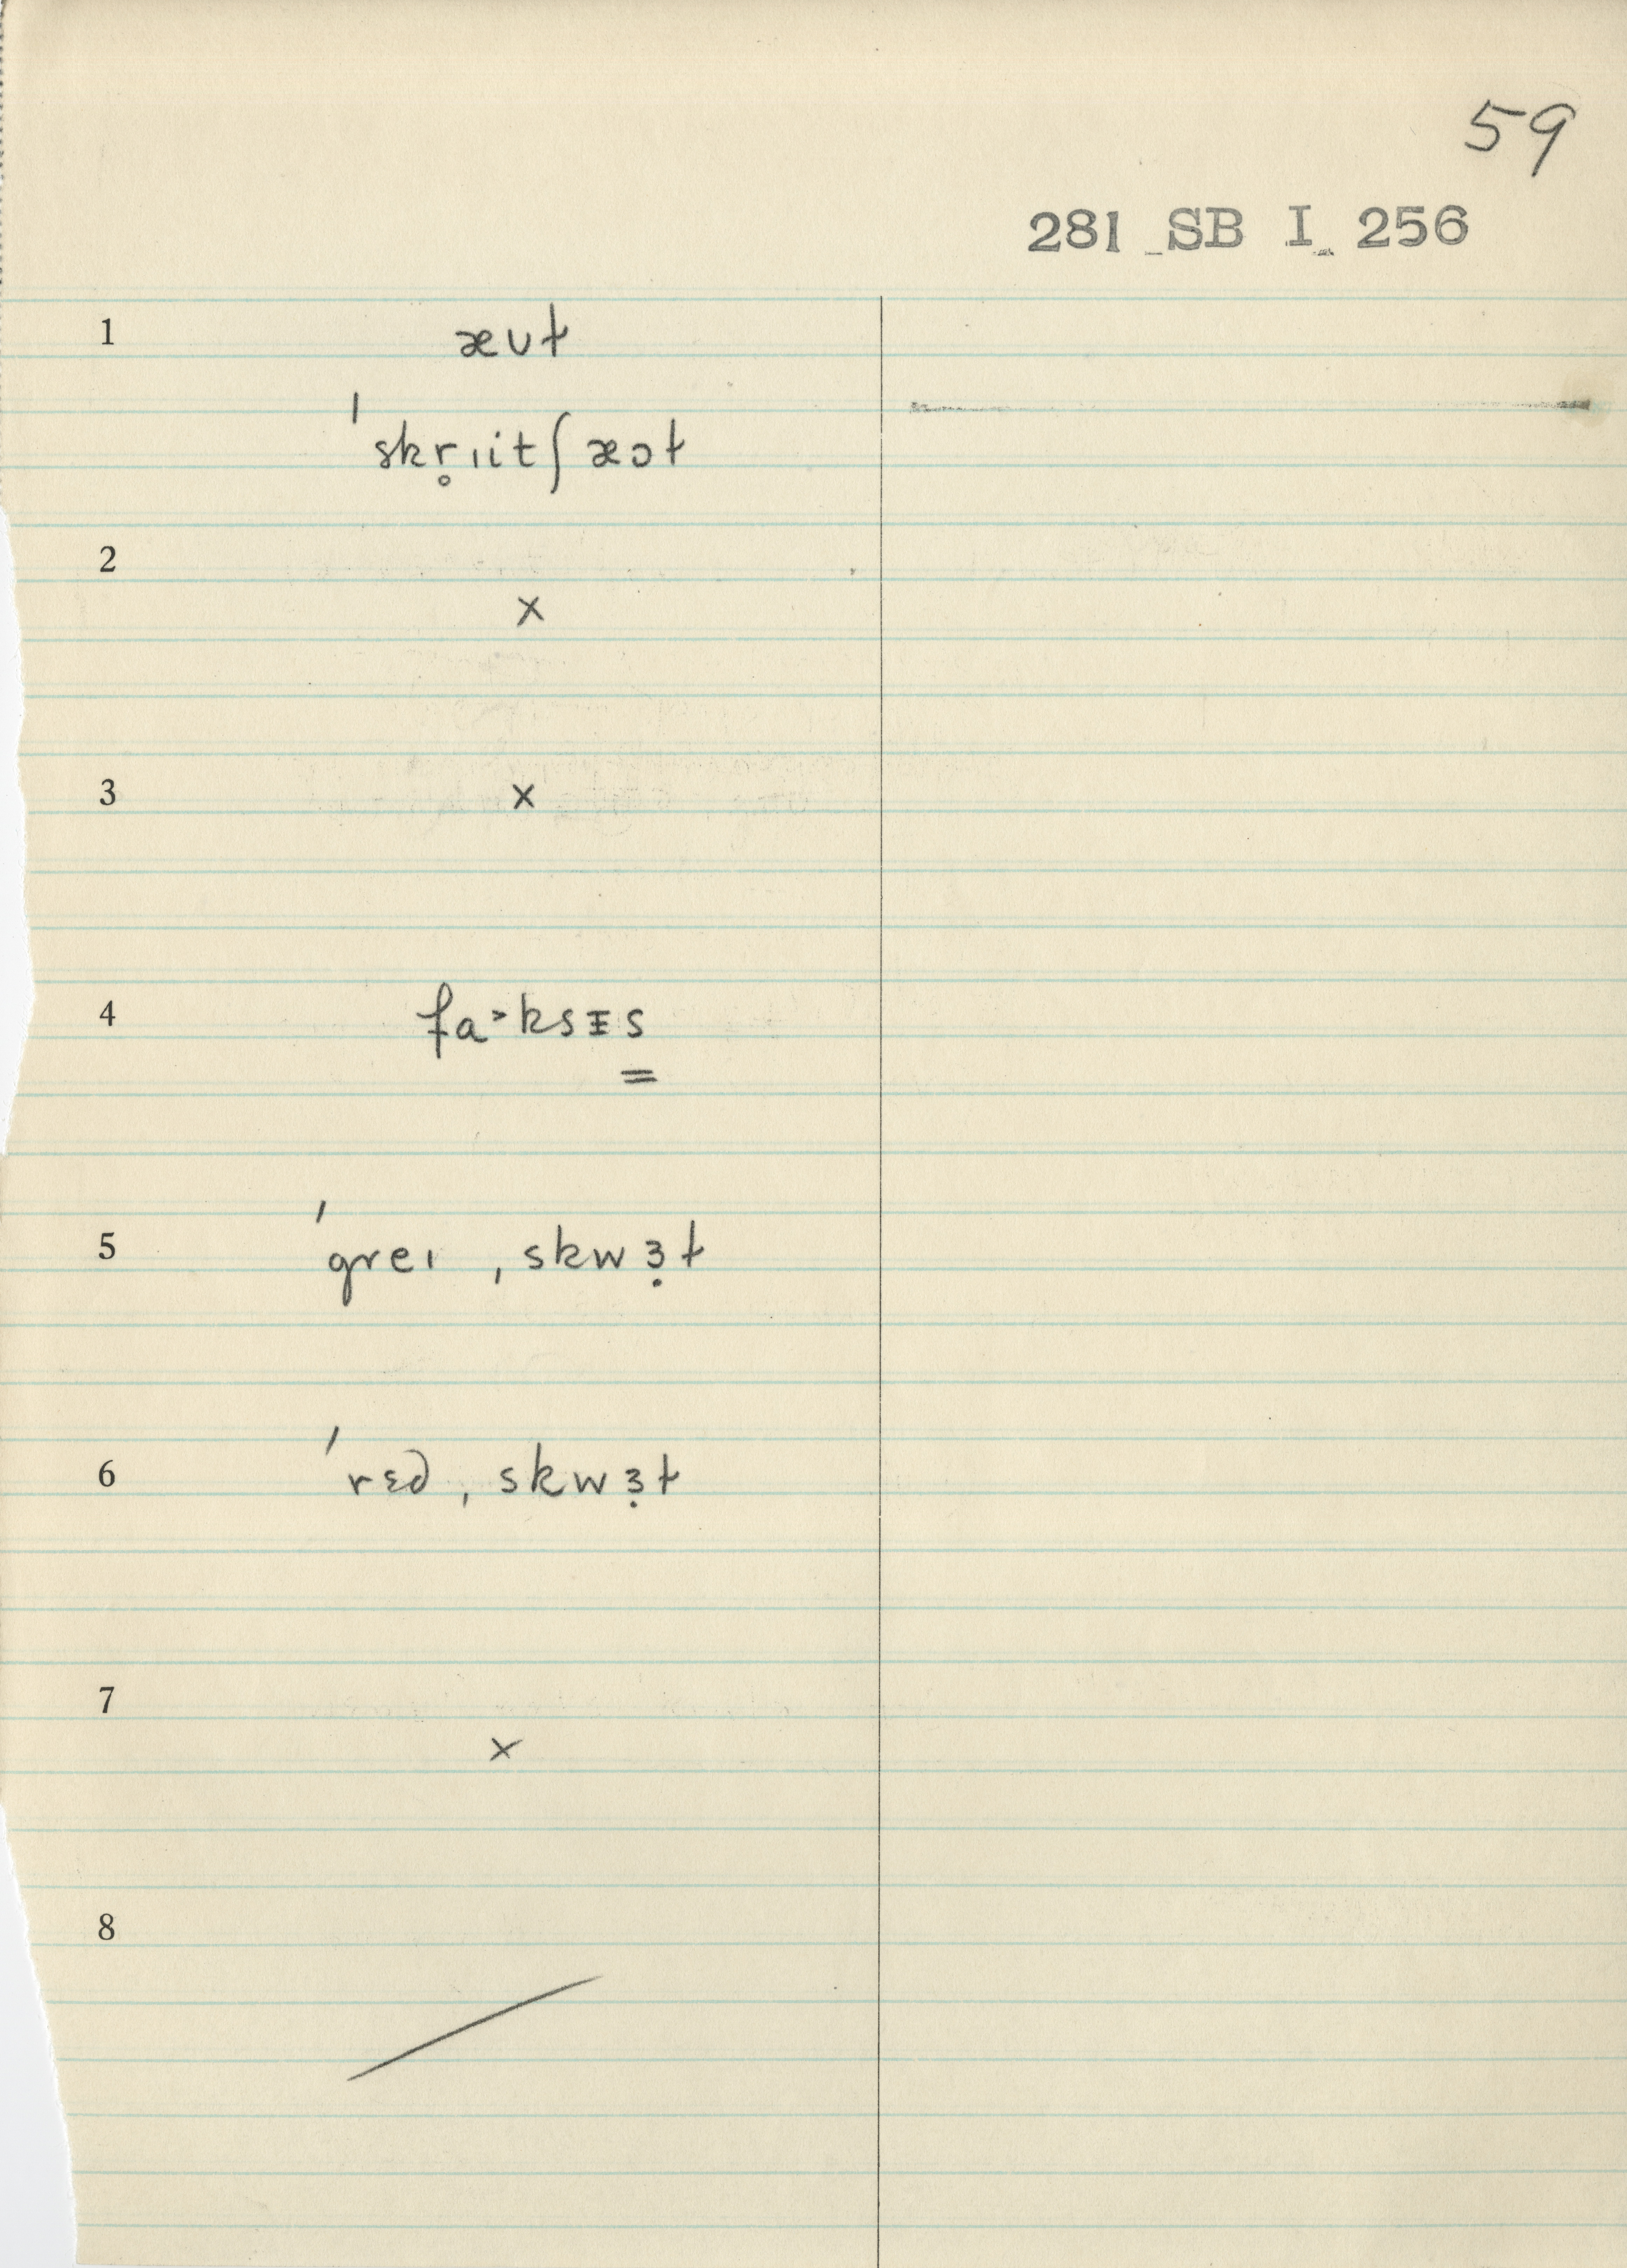 59
281 SB I 256
1 æʊɫ
ˈskr̥ɪitʃæɔɫ
2 ×
3 ×
4 fa˃ksᵻs
5 ˈgreɪ ˌskwɜ̣ɫ
6 ˈrɛd ˌskwɜ̣ɫ
7 ×
8